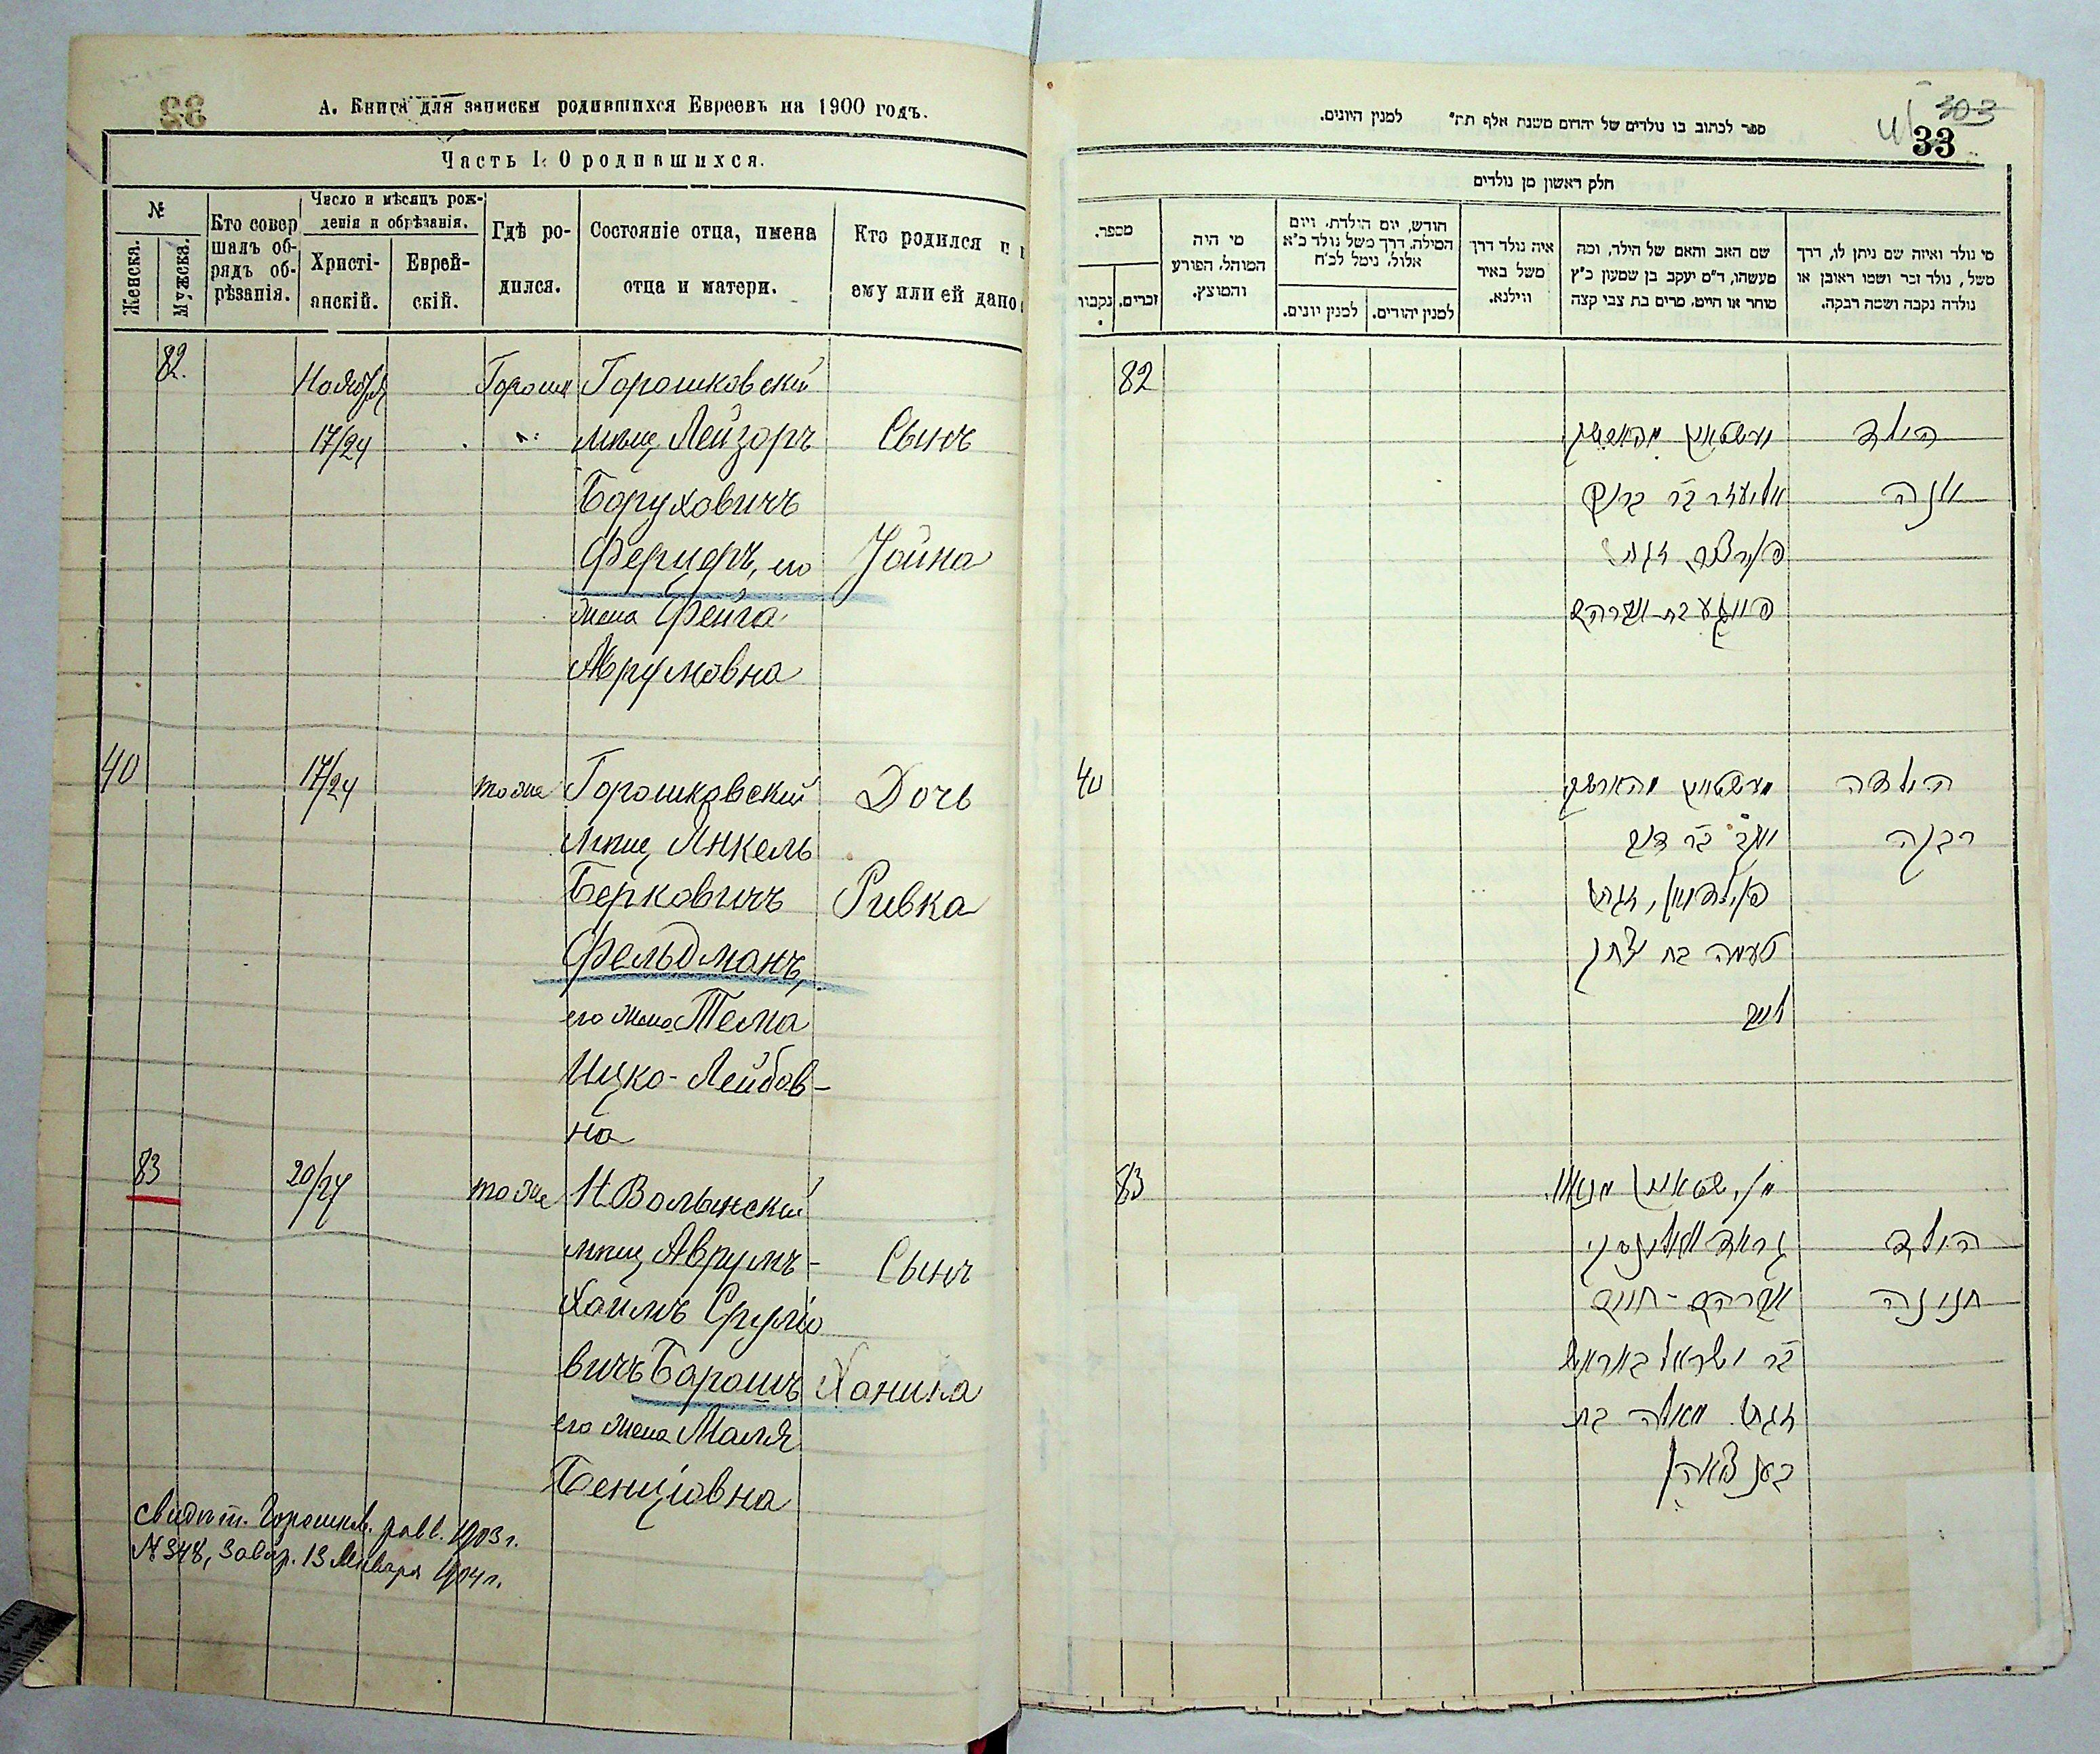 А. Книга для записки родившихся Евреевъ на 1900 годъ.
Часть I. О родившихся.
№
Женска.
Мужска.
Кто совер
шалъ об-
рядъ об-
рѣзанія.
Число и мѣсяцъ рож-
денія и обрѣзанія.
Христі-
анскій.
Еврей-
скій.
Гдѣ ро-
дился.
Состояніе отца, имена
отца и матери.
Кто родился и
ему или ей дано
82.
Ноября
17/24
Горошк
Горошковскій
мѣщ. Лейзоръ
Боруховичъ
Ферцеръ, его
жена Фейга
Аврумовна
Сынъ
Іойна
40
17/24
тоже
Горошковскій
мѣщ. Янкель
Берковичъ
Фельдманъ,
его жена Тема
Ицко-Лейбов-
на
Дочь
Ривка
83
20/27
тоже
Н Волынскій
мѣщ. Аврумъ-
Хаимъ Срулiо
вичъ Барошъ
его жена Маля
Бенціовна
Сынъ
Ханина
Свидѣт. Горошков. равв. 1903 г.
№ 348, 13 Января 1904 г.
ספר לכתוב בו נולדים של יהדום משנת אלף תת״ למנין היונים.
303
33
חלק ראשון מן נולדים
מספר.
נקבו׳
זכרים.
מי היה
המוהל, הפורע
והמוצץ.
חודש, יום הולדת, ויום
המילה, דרך משל נולד כ״א
אלול, נימל לכ״ח
למנין יונים.
למנין יהודים.
איה נולד דרך
משל באיר
ווילנא.
שם האב והאם של הילד, וכה
מעשהו, ד״מ יעקב בן שמעון כ״ץ
סוחר או חייט, מרים בת צבי קצה
מי נולד ואיזה שם ניתן לו, דרך
משל, נולד זכר ושמו ראובן או
נולדה נקבה ושמה רבקה.
82
אליעזר ב״ר ברוך
פערצער, זוגתו
פייגע בת אברהם
הילד
יונה
40
יעקב ב״ר
פעלדמאן, זוגתו
טעמה בת יצחק
לייב
הילדה
רבקה
83
אברהם - חיים
ב״ר ישראל באראש
זוגתו מאליה בת
בען ציאהן
הילד
חנינה